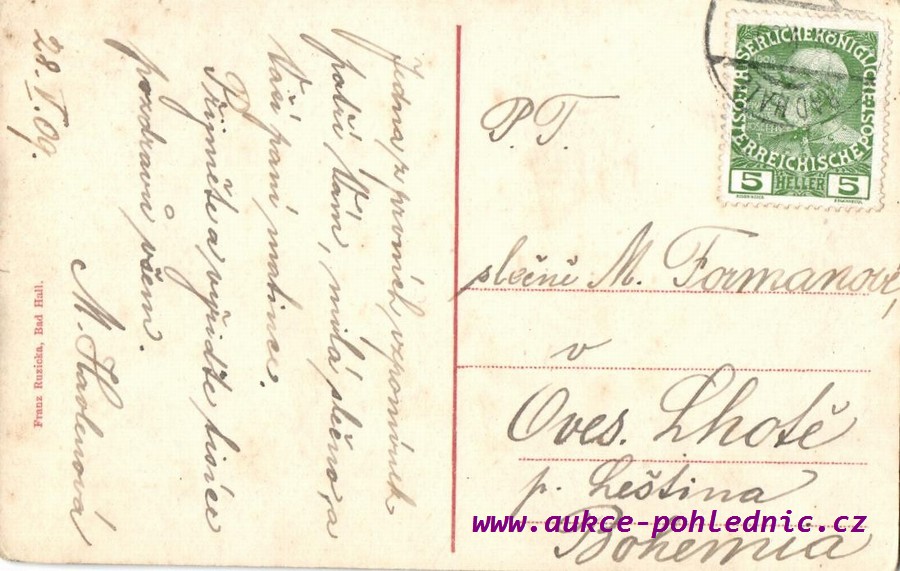 28. V. 09.
Jedna z prvních vzpomínek
patří Vám, milá slečno, a
Vaší paní matince.
Přijměte a vyřiďte tisíce
pozdravů všem.
M. Havlenová
Franz Ruzicka, Bad Hall.
P. T.
slečně M. Formanové,
v
Oves. Lhotě
p. Leština
Bohemia
KAISERLICHE KÖNIGLICHE
ÖSTERREICHISCHE POST
5 HELLER 5
BAD HALL
www.aukce-pohlednic.cz